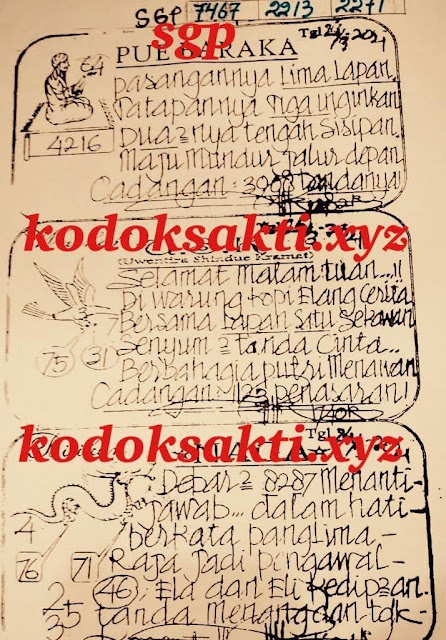 SGP 7467 2213 2271
sgp
Tgl 24/3-2021
PUE BARAKA
64
4216
pasangannya Lima Lapan.
Tatapannya Tiga inginkan
Dua2nya tengah Sisipan.
Maju Mundur Jalur depan
Cadangan: 3008
kodoksakti.xyz
(Uwentira Shindue Kramat)
Selamat Malam Tuan...!!
Di Warung kopi Elang Cerita
Bersama Lapan Satu Sekawan
Senyum2 Tanda Cinta...
Berbahagia putri Menawan
75 31
Cadangan 1125 penasaran!
Tgl 24
kodoksakti.xyz
Debar2 8287 Menanti-
jawab... dalam hati-
berkata panglima-
Raja Jadi pengawal-
4
76 71
46; Ela dan Eli Kedip2an.
25 Tanda Menanta dan tak-
35